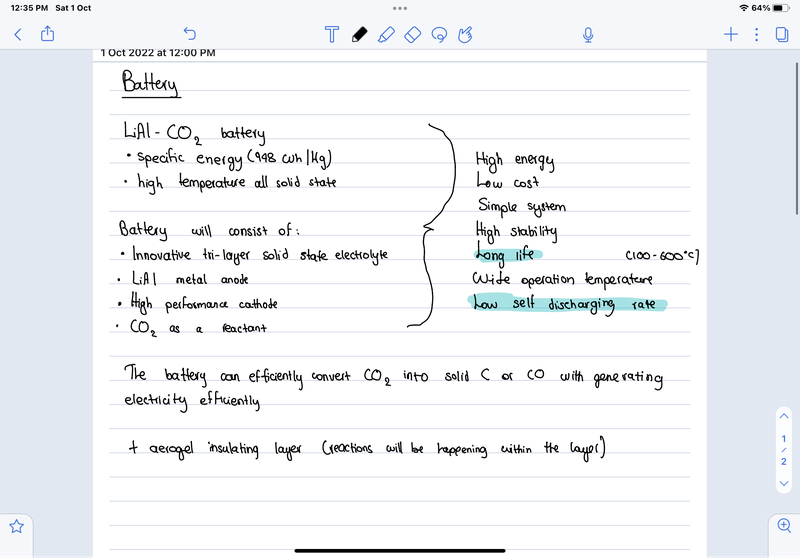 12:35 PM Sat 1 Oct
64%
1 Oct 2022 at 12:00 PM
Battery
LiAl - CO₂ battery
• specific energy (998 Wh/Kg)
• high temperature all solid state
Battery will consist of:
• Innovative tri-layer solid state electrolyte
• LiAl metal anode
• High performance cathode
• CO₂ as a reactant
High energy
Low cost
Simple system
High stability
Long life
(100-600°C)
Wide operation temperature
Low self discharging rate
The battery can efficiently convert CO₂ into solid C or CO with generating
electricity efficiently
+ aerogel insulating layer (reactions will be happening within the layer)
1
/
2